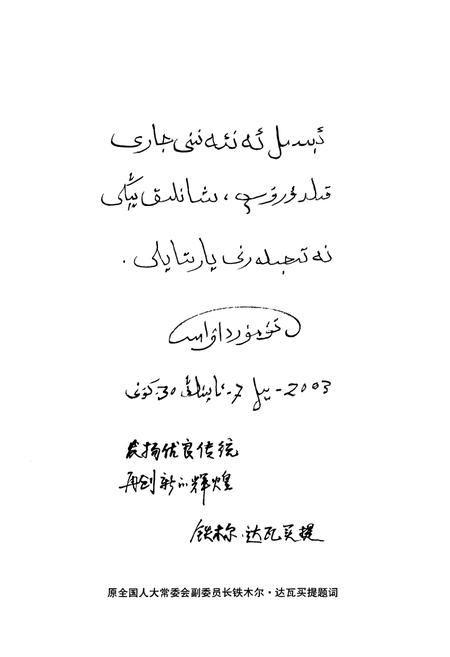 ئېسىل ئەنئەنىنى جارى
قىلدۇرۇپ، شانلىق يېڭى
نەتىجىلەرنى يارىتايلى.
تۆمۈر داۋامەت
2003-يىل 7-ئاينىڭ 30-كۈنى
发扬优良传统
再创新的辉煌
铁木尔·达瓦买提
原全国人大常委会副委员长铁木尔·达瓦买提题词